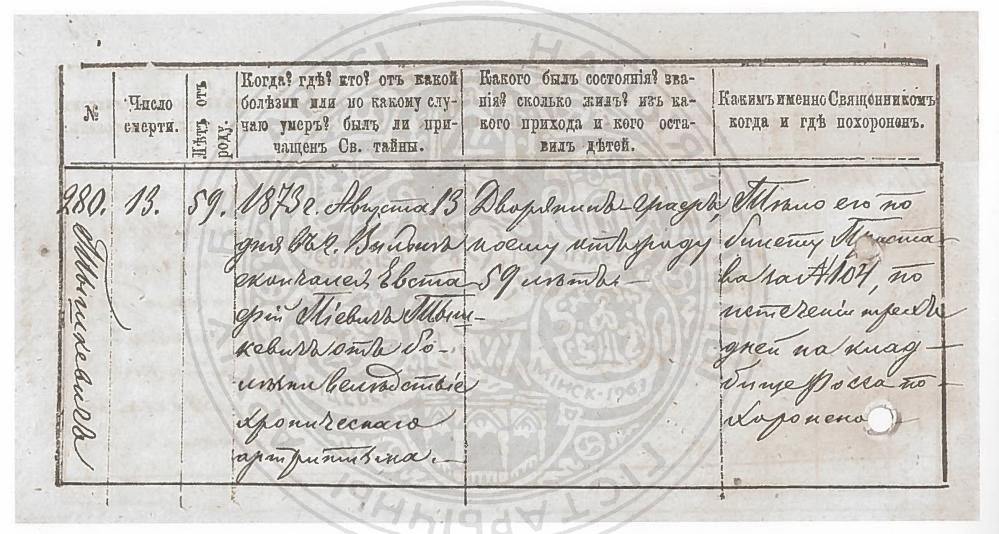 №
Число
смерти.
Лѣтъ отъ
роду.
Когда? гдѣ? кто? отъ какой
болѣзни или по какому слу-
чаю умеръ? былъ ли при-
чащенъ Св. тайны.
Какого былъ состоянія? зва-
нія? сколько жилъ? изъ ка-
кого прихода и кого оста-
вилъ дѣтей.
Какимъ именно Священникомъ
когда и гдѣ похороненъ.
280.
Тышкевичъ
13.
59.
1873 г. Августа 13
дня въ г. Вильнѣ
скончался Евста-
фій Піевичъ Тыш-
кевичъ отъ бо-
лѣзни вслѣдствіе
хроническаго
артритизма. —
Дворянинъ-графъ,
коему отъ роду
59 лѣтъ —
Тѣло его по
билету Приста-
ва за №104, по
истеченіи трехъ
дней на клад-
бище Росса по-
хоронено
ГІСТАРЫЧНЫ
МІНСК·1963